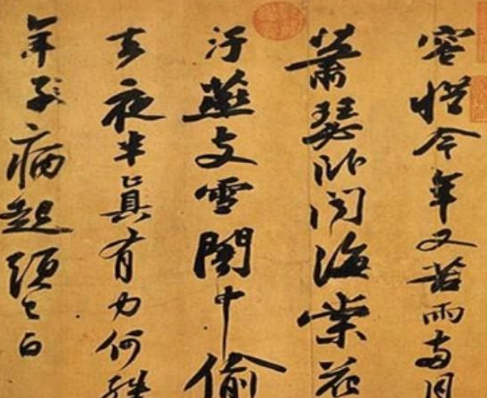 容惜今年又苦雨兩月
蕭瑟卧聞海棠花
汙燕支雪闇中偷
去夜半真有力何殊
年子病起頭已白